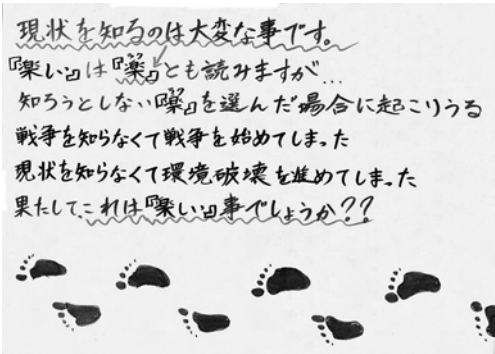 現状を知るのは大変な事です。
『楽しい』は『楽』とも読みますが…
知ろうとしない『楽』を選んだ場合に起こりうる
戦争を知らなくて戦争を始めてしまった
現状を知らなくて環境破壊を進めてしまった
果たして、これは『楽しい』事でしょうか??